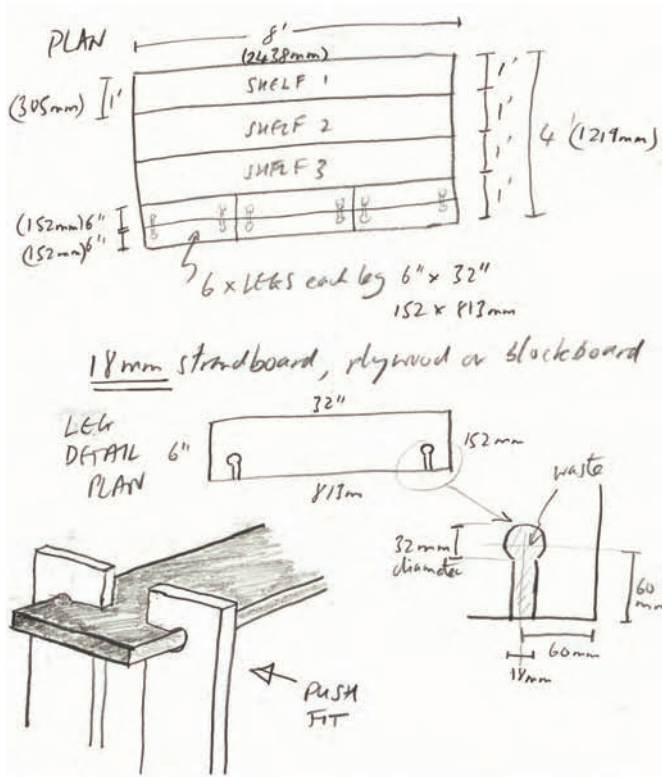 PLAN
8'
(2438mm)
(305mm) 1'
SHELF 1
SHELF 2
SHELF 3
1'
1'
1'
1'
4' (1219mm)
(152mm) 6"
(152mm) 6"
6 x LEGS each leg 6" x 32"
152 x 813mm
18mm strandboard, plywood or blockboard
LEG
DETAIL
PLAN
6"
32"
152mm
813m
waste
32mm
diameter
60
mm
60mm
18mm
PUSH
FIT